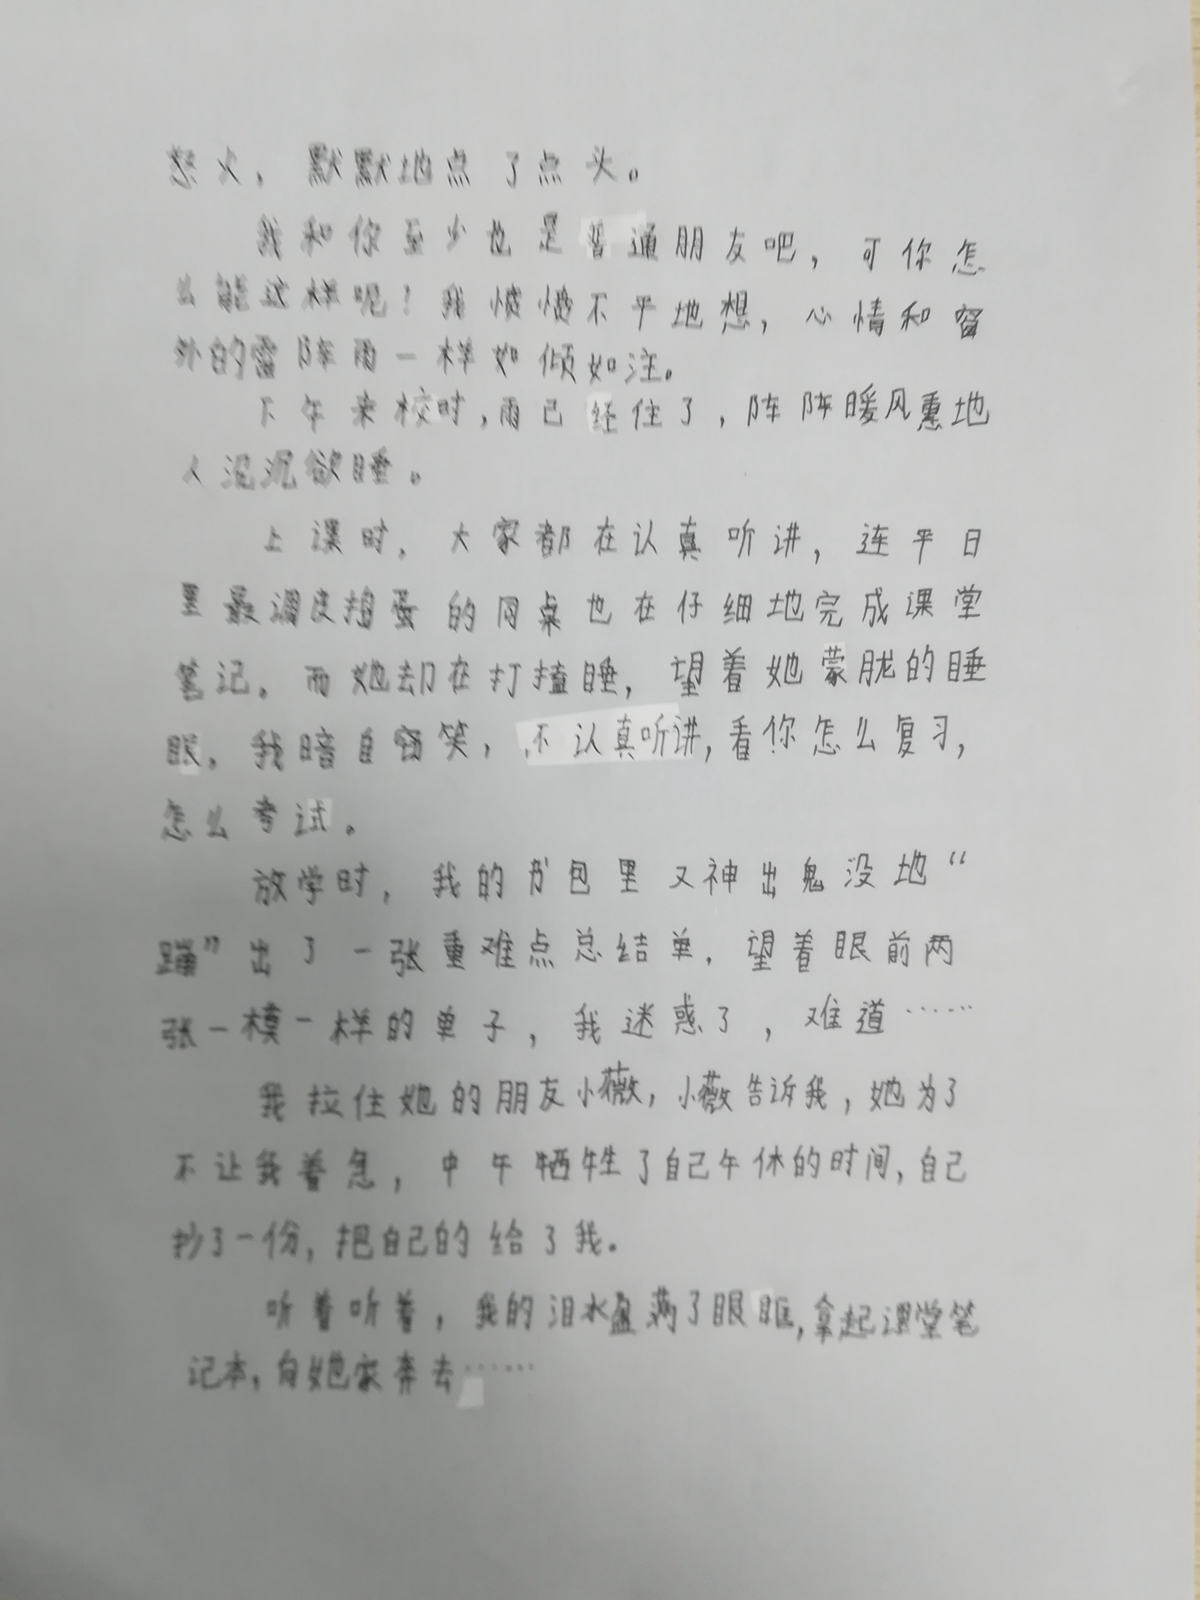 怒火，默默地点了点头。
我和你至少也是普通朋友吧，可你怎
么能这样呢！我愤愤不平地想，心情和窗
外的雷阵雨一样如倾如注。
下午来校时，雨已经住了，阵阵暖风熏地
人沉沉欲睡。
上课时，大家都在认真听讲，连平日
里最调皮捣蛋的同桌也在仔细地完成课堂
笔记。而她却在打瞌睡，望着她蒙胧的睡
眼，我暗自窃笑，不认真听讲，看你怎么复习，
怎么考试。
放学时，我的书包里又神出鬼没地“
蹦”出了一张重难点总结单，望着眼前两
张一模一样的单子，我迷惑了，难道……
我拉住她的朋友小薇，小薇告诉我，她为了
不让我着急，中午牺牲了自己午休的时间，自己
抄了一份，把自己的给了我。
听着听着，我的泪水盈满了眼眶，拿起课堂笔
记本，向她家奔去……